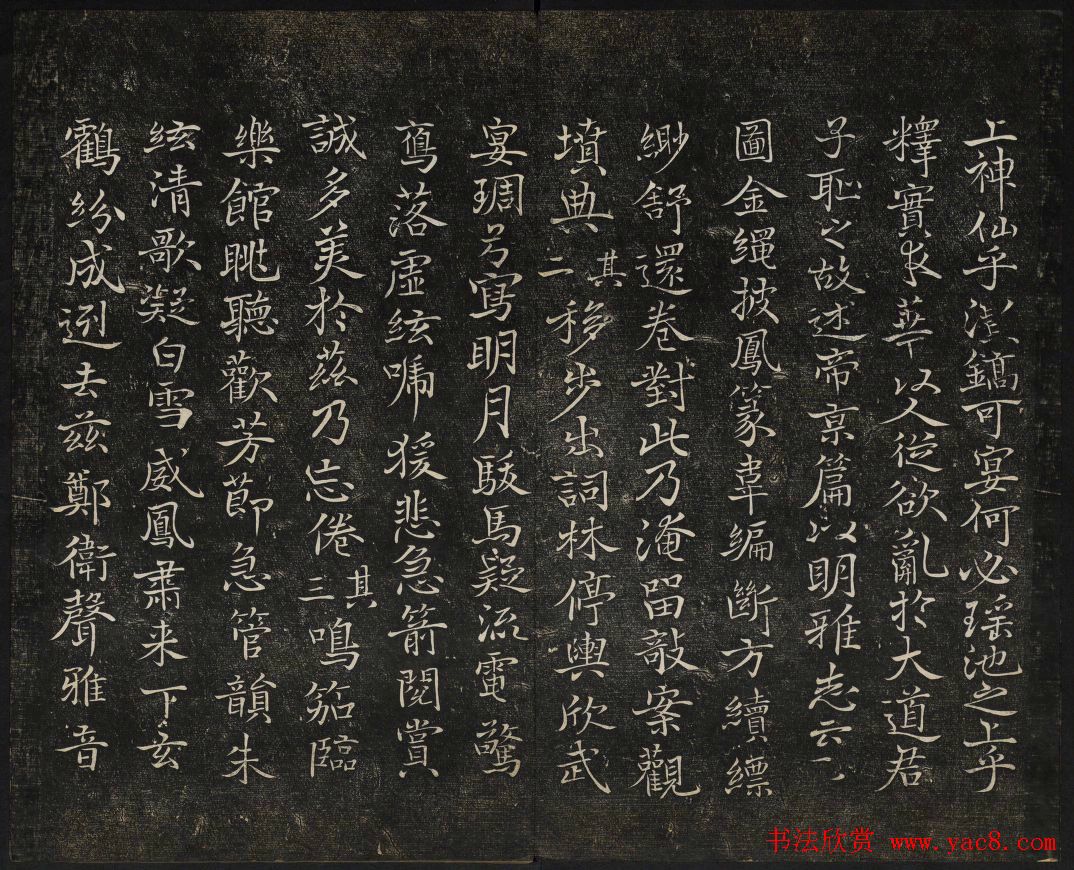 上神仙乎灃鎬可宴何必瑶池之上乎
釋實求華以人從欲亂於大道君
子恥之故述帝京篇以明雅志云
圖金繩披鳳篆韋編斷方續縹
緲舒還卷對此乃淹留敲案觀
墳典其二移步出詞林停輿欣武
宴琱弓寫明月駿馬疑流電驚
鴈落虛絃嗁猨悲急箭閱賞
誠多美於茲乃忘倦其三鳴笳臨
樂館眺聽歡芳節急管韻朱
絃清歌凝白雪威鳳肅来下玄
鸖紛成迾去兹鄭衛聲雅音
书法欣赏 www.yac8.com